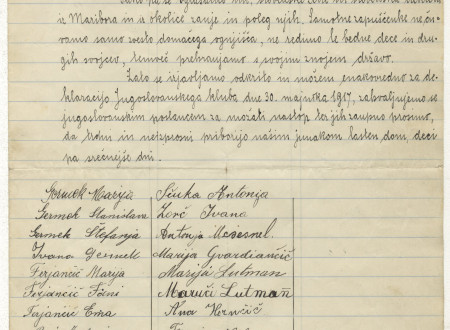 iz Maribora in iz okolice zanje in poleg njih. Samotne zapuščenke ne čn-
vamo samo zvesto domačega ognjišča, ne redimo le bedne dece in dru-
gih svojcev, temveč prehranjamo s svojim znojem državo.
Zato se izjavljamo odkrito in možem enakovredno za de-
klaracijo Jugoslovanskega kluba dne 30. majnika 1917, zahvaljujemo se
jugoslovanskim poslancem za možati nastop ter jih zaupno prosimo,
da trdni in neizprosni priborijo našim junakom lasten dom, deci
pa srečnejše dni.
Germek Marija Sluka Antonija
Germek Stanislava Zorč Ivana
Germek Štefanja Antonja Mesesnel
Ivana Germek Marija Gvardjančič
Ferjančič Marija Marija Lutman
Ferjančič Fani Marici Lutman
Ferjančič Ema Ana Hernčič